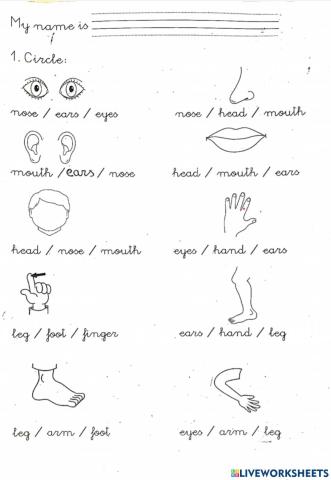 My name is
1. Circle:
nose / ears / eyes
nose / head / mouth
mouth / ears / nose
head / mouth / ears
head / nose / mouth
eyes / hand / ears
leg / foot / finger
ears / hand / leg
leg / arm / foot
eyes / arm / leg
LIVEWORKSHEETS